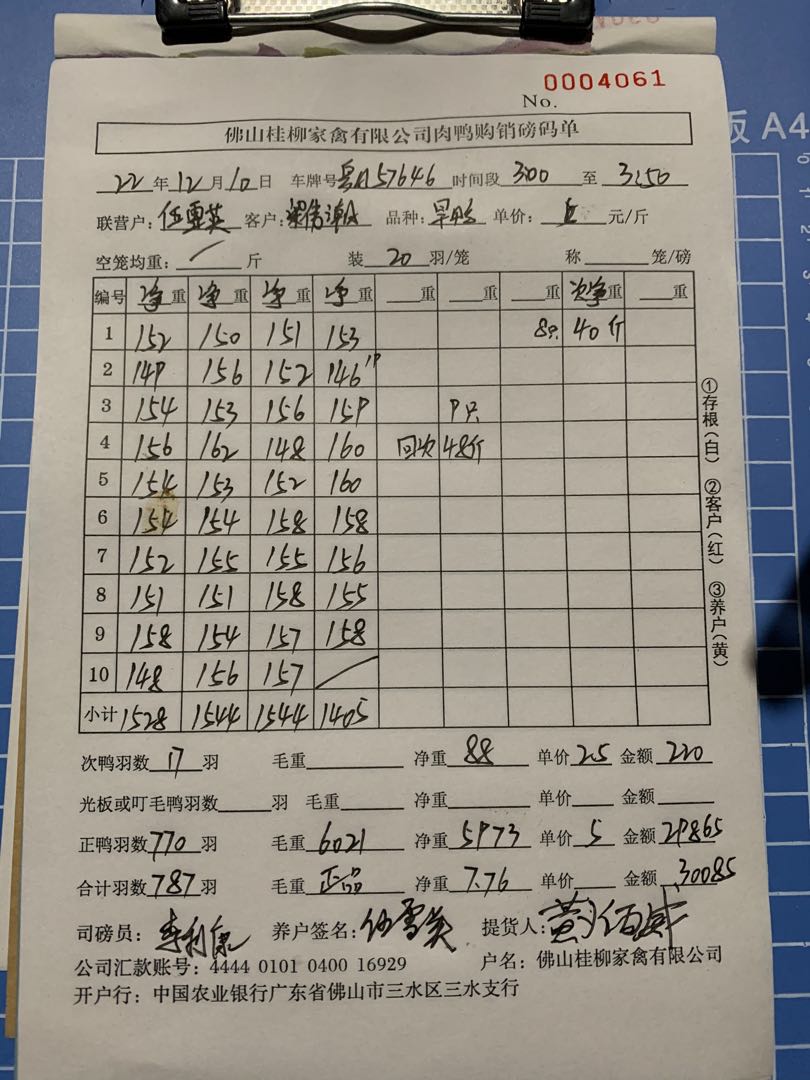 0004061
No.
佛山桂柳家禽有限公司肉鸭购销磅码单
22年12月10日 车牌号粤A57646 时间段3:00至3:50
联营户:伍雪英 客户: 品种:旱鸭 单价: 元/斤
空笼均重:/斤 装20羽/笼 称 笼/磅
编号 净重 净重 净重 净重 重 重 重 次净重 重
1 152 150 151 153 8只 40斤
2 149 156 152 146 19
3 154 153 156 159 9只
4 156 162 148 160 回次 48斤
5 154 153 152 160
6 154 154 158 158
7 152 155 155 156
8 151 151 158 155
9 158 154 157 158
10 148 156 157 /
小计 1528 1544 1544 1405
①存根(白) ②客户(红) ③养户(黄)
次鸭羽数17羽 毛重 净重88 单价2.5 金额220
光板或叮毛鸭羽数 羽 毛重 净重 单价 金额
正鸭羽数770羽 毛重6021 净重5973 单价5 金额29865
合计羽数787羽 毛重正品 净重7.76 单价 金额30085
司磅员: 养户签名:伍雪英 提货人:黄佰威
公司汇款账号:4444 0101 0400 16929 户名:佛山桂柳家禽有限公司
开户行:中国农业银行广东省佛山市三水区三水支行
板 A4